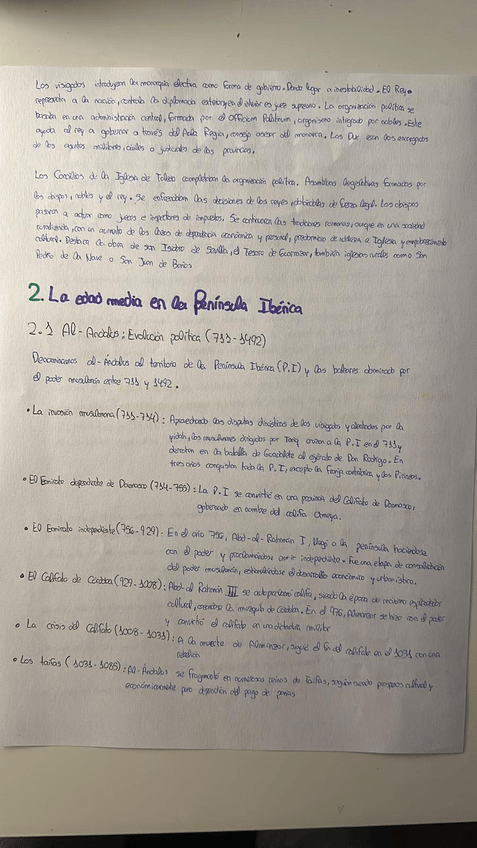 Los visigodos introdujeron la monarquía electiva como forma de gobierno. Dando lugar a inestabilidad. El Rey
representa a la nación, controla la diplomacia exterior y en el interior es juez supremo. La organización política se
basaba en una administración central, formada por el Officium Palatinum, organismo integrado por nobles. Este
ayuda al rey a gobernar a través del Aula Regia, consejo asesor del monarca. Los Dux eran los encargados
de los asuntos militares, civiles o judiciales de las provincias.
Los Concilios de la Iglesia de Toledo completaban la organización política. Asambleas legislativas formadas por
los obispos, nobles y el rey. Se refrendaban las decisiones de los reyes, dotándolas de fuerza legal. Los obispos
pasaron a actuar como jueces e inspectores de impuestos. Se continuaron las tradiciones romanas, aunque en una sociedad
ruralizada, con un aumento de los lazos de dependencia económica y personal, predominio de nobleza e Iglesia y empobrecimiento
cultural. Destaca la obra de san Isidoro de Sevilla, el Tesoro de Guarrazar, también iglesias rurales como San
Pedro de la Nave o San Juan de Baños
2. La edad media en la Península Ibérica
2.1 Al-Andalus: Evolución política (711-1492)
Denominamos al-Ándalus al territorio de la Península Ibérica (P.I) y las baleares dominado por
el poder musulmán entre 711 y 1492.
• La invasión musulmana (711-714): Aprovechando las disputas dinásticas de los visigodos y alentados por la
yihah, los musulmanes dirigidos por Tariq cruzan a la P.I en el 711 y
derrotan en la batalla de Guadalete al ejército de Don Rodrigo. En
tres años conquistan toda la P.I, excepto la franja cantábrica y los Pirineos.
• El Emirato dependiente de Damasco (714-756): La P.I se convirtió en una provincia del Califato de Damasco,
gobernado en nombre del califa Omeya.
• El Emirato independiente (756-929): En el año 756, Abd-al-Rahmán I, llegó a la península haciéndose
con el poder y proclamándose emir independiente. Fue una etapa de consolidación
del poder musulmán, estableciéndose el desarrollo económico y urbanístico.
• El Califato de Córdoba (929-1008): Abd-al Rahmán III se autoproclamó califa, siendo la época de máximo esplendor
cultural, construye la mezquita de Córdoba. En el 976, Almanzor se hizo con el poder
y convirtió el califato en una dictadura militar
• La crisis del Califato (1008-1031): A la muerte de Almanzor, sigue el fin del califato en el 1031 con una
rebelión
• Los taifas (1031-1085): Al-Ándalus se fragmentó en numerosos reinos de Taifas, seguían siendo prósperos cultural y
económicamente pero dependían del pago de parias